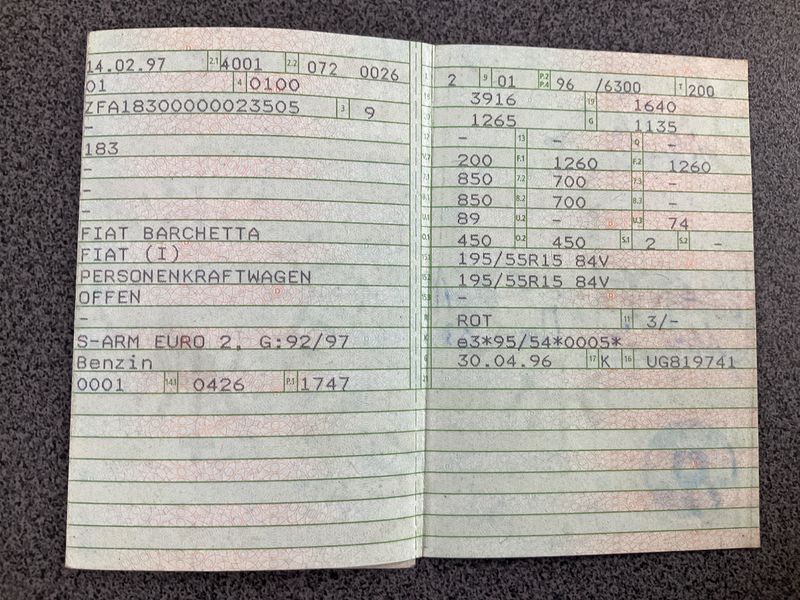 14.02.97 2.1 4001 2.2 072 0026
01 4 0100
ZFA18300000023505 3 9
-
183
-
-
-
FIAT BARCHETTA
FIAT (I)
PERSONENKRAFTWAGEN
OFFEN
-
S-ARM EURO 2, G:92/97
Benzin
0001 14.1 0426 P.1 1747
2 9 01 P.2 P.4 96 /6300 T 200
18 3916 19 1640
20 1265 G 1135
12 - 13 - Q -
V.7 200 F.1 1260 F.2 1260
7.1 850 7.2 700 7.3 -
8.1 850 8.2 700 8.3 -
U.1 89 U.2 - U.3 74
O.1 450 O.2 450 S.1 2 S.2 -
15.1 195/55R15 84V
15.2 195/55R15 84V
15.3 -
R ROT 11 3/-
K e3*95/54*0005*
6 30.04.96 17 K 16 UG819741
21